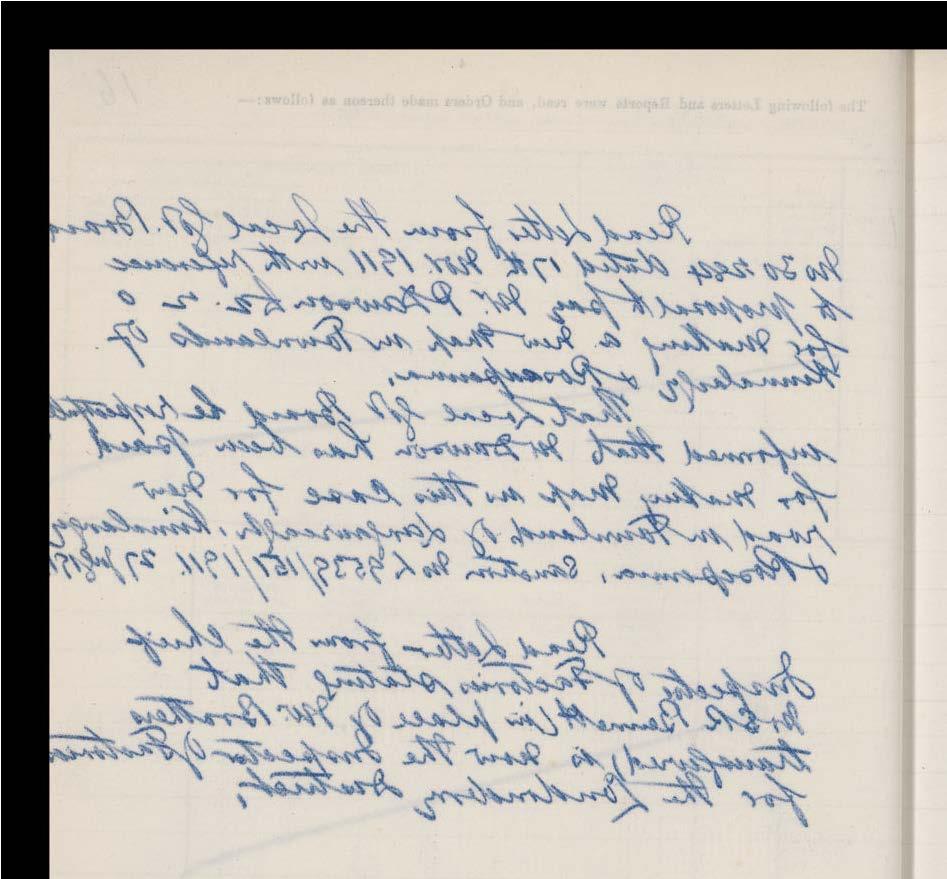 The following Letters and Reports were read, and Orders made thereon as follows:—
Read Letter from the Local Gvt. Board
No dated 17th Nov. 1911 with reference
to proposal to pay Mr. P Dawson £2. 2 0
for making a new map in Townlands of
& Rosepenna.
That Local Gvt Board be
informed that Mr Dawson has been paid
for making map in this case for new
road in Townlands of
& Rosepenna. Sanction No 1911 27 July
Read Letter from the Chief
Inspector of Factories stating that
Mr E.R. Bennett (in place of Mr.
transferred), is now the Inspector of Factories
for the Londonderry District.